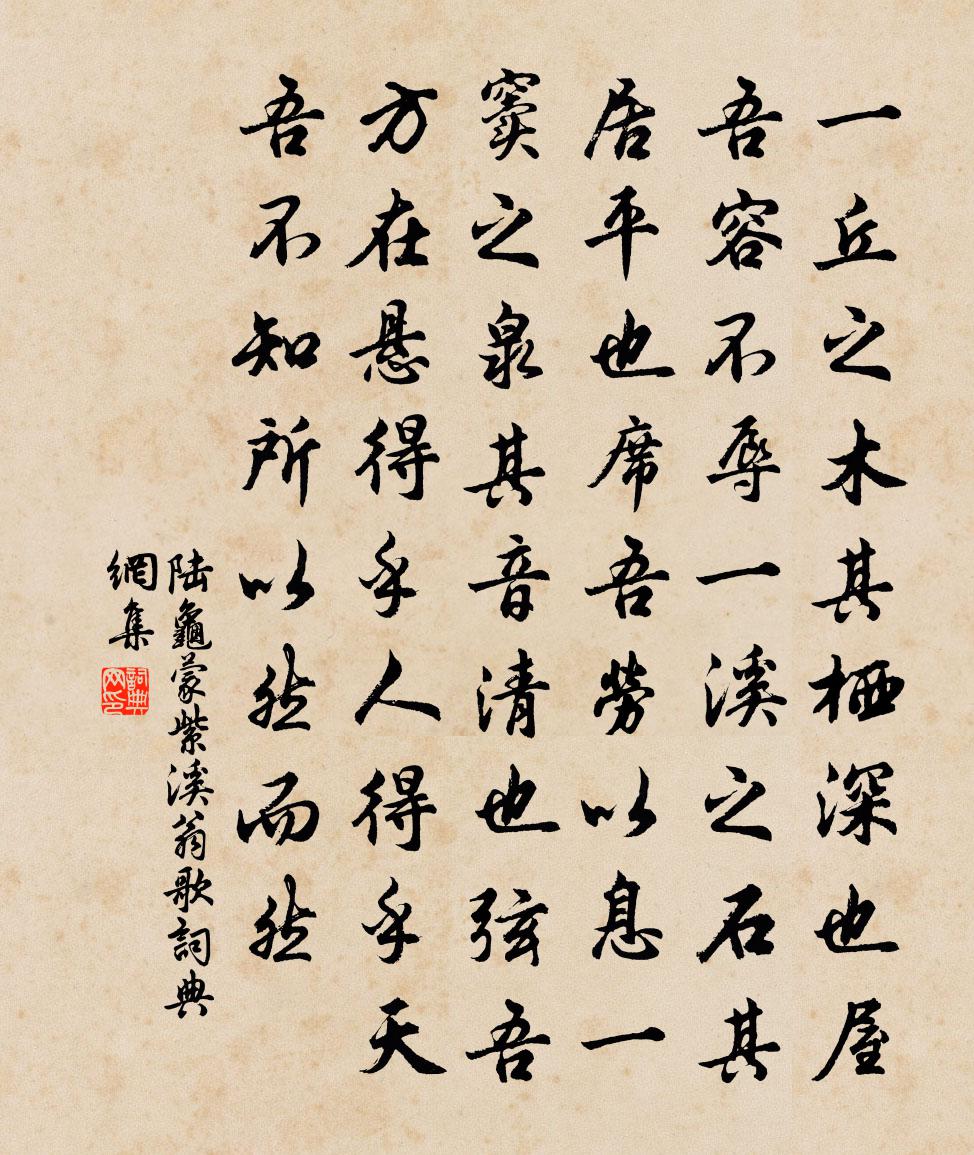 一丘之木其栖深也屋
吾容不辱一溪之石其
居平也席吾勞以息一
窦之泉其音清也弦吾
方在悬得乎人得乎天
吾不知所以然而然
陆龜蒙紫溪翁歌詞典
網集
詞典
网印